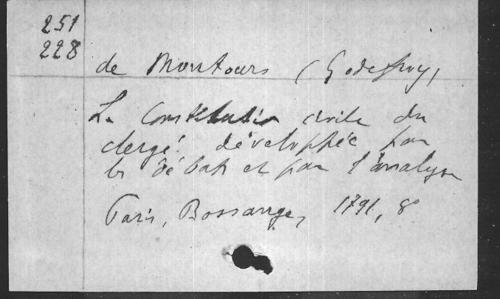 251
228
de Montours (Godefroy)
La Constitution civile du
clergé. développée par
les débats et par l'analyse
Paris, Bossange, 1791, 8°